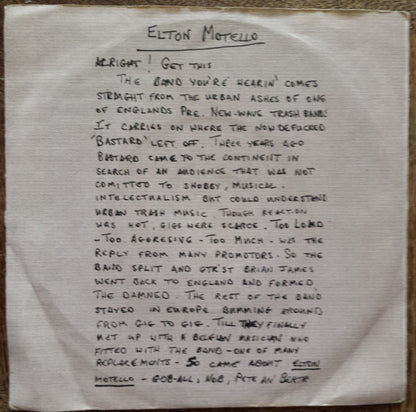 ELTON MOTELLO
ALRIGHT! GET THIS
THE BAND YOU'RE HEARIN' COMES
STRAIGHT FROM THE URBAN ASHES OF ONE
OF ENGLANDS PRE. NEW-WAVE TRASH BANDS
IT CARRIES ON WHERE THE NOW DEFUCKED
'BASTARD' LEFT OFF. THREE YEARS AGO
BASTARD CAME TO THE CONTINENT IN
SEARCH OF AN AUDIENCE THAT WAS NOT
COMITTED TO SNOBBY, MUSICAL.
INTOLECTUALISM BUT COULD UNDERSTAND
URBAN TRASH MUSIC. THOUGH REACTION
WAS HOT, GIGS WERE SCARCE. TOO LOUD
- TOO AGGRESIVE - TOO MUCH - WAS THE
REPLY FROM MANY PROMOTORS. SO THE
BAND SPLIT AND GTR'ST BRIAN JAMES
WENT BACK TO ENGLAND AND FORMED
THE DAMNED. THE REST OF THE BAND
STAYED IN EUROPE BUMMING AROUND
FROM GIG TO GIG. TILL THEY FINALLY
MET UP WITH A BELGIAN MUSICIAN WHO
FITTED WITH THE BAND - ONE OF MANY
REPLACEMENTS - SO CAME ABOUT ELTON
MOTELLO - GOB-ALL, NOB, PETE AN'